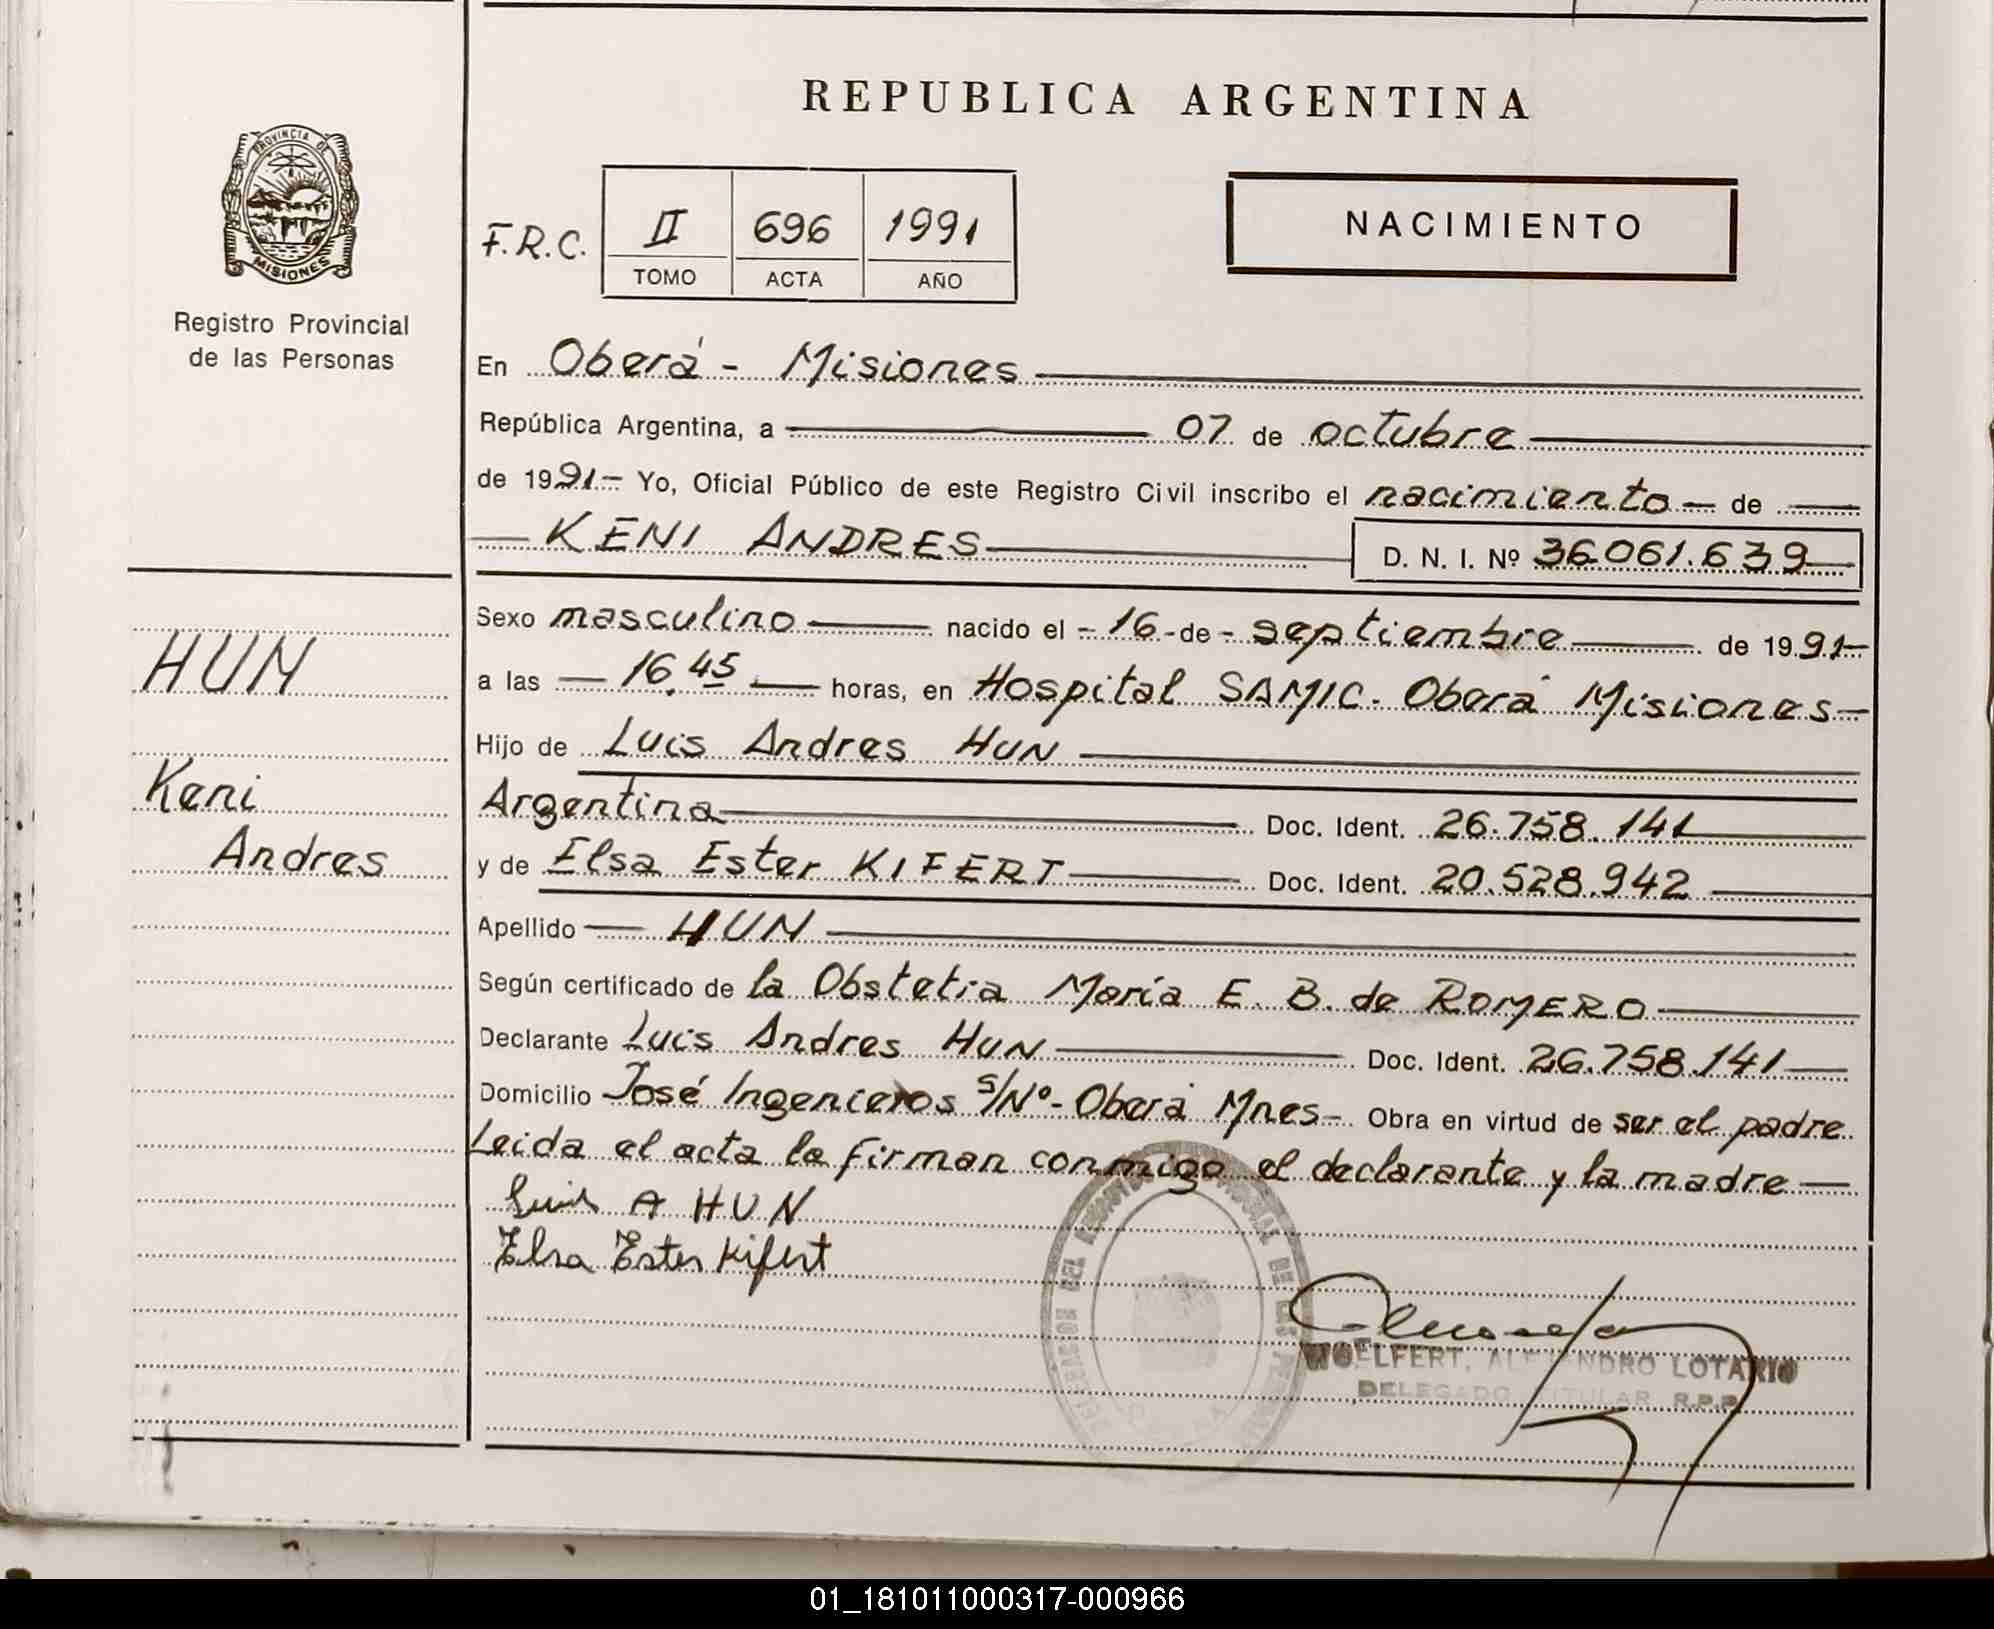 REPUBLICA ARGENTINA
PROVINCIA DE
MISIONES
Registro Provincial
de las Personas
F.R.C. II 696 1991
TOMO ACTA AÑO
NACIMIENTO
En Oberá - Misiones
República Argentina, a 07 de octubre
de 1991- Yo, Oficial Público de este Registro Civil inscribo el nacimiento - de
KENI ANDRES D. N. I. Nº 36.061.639
Sexo masculino nacido el - 16 - de - septiembre de 1991-
a las - 16.45 - horas, en Hospital SAMIC. Oberá Misiones-
Hijo de Luis Andres HUN
Argentina Doc. Ident. 26.758.141
y de Elsa Ester KIFERT Doc. Ident. 20.528.942
Apellido - HUN
Según certificado de la Obstetra María E. B. de ROMERO
Declarante Luis Andres HUN Doc. Ident. 26.758.141
Domicilio José Ingenieros s/Nº- Oberá Mnes- Obra en virtud de ser el padre
Leida el acta la firman conmigo el declarante y la madre
Luis A HUN
Elsa Ester Kifert
HUN
Keni
Andres
WOELFERT, ALEJANDRO LOTARIO
DELEGADO TITULAR R.P.P.
01_181011000317-000966